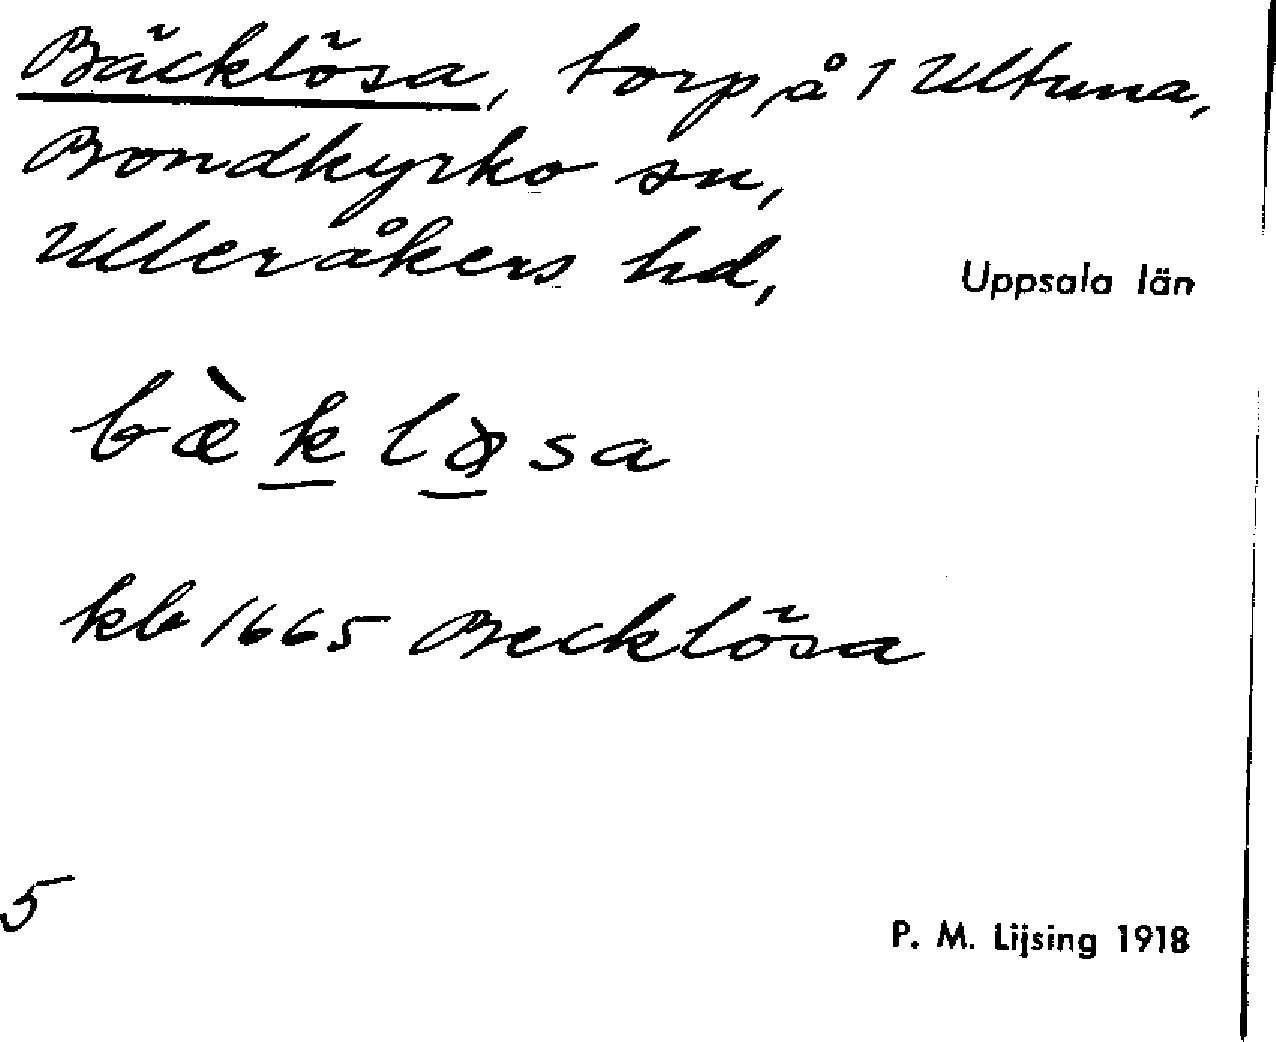 Bäcklösa, torp, å 1 Ultuna,
Bondkyrko sn,
Ulleråkers hd, Uppsala län
bæ̀k løsa
kb 1665 Becklösa
5
P. M. Lijsing 1918